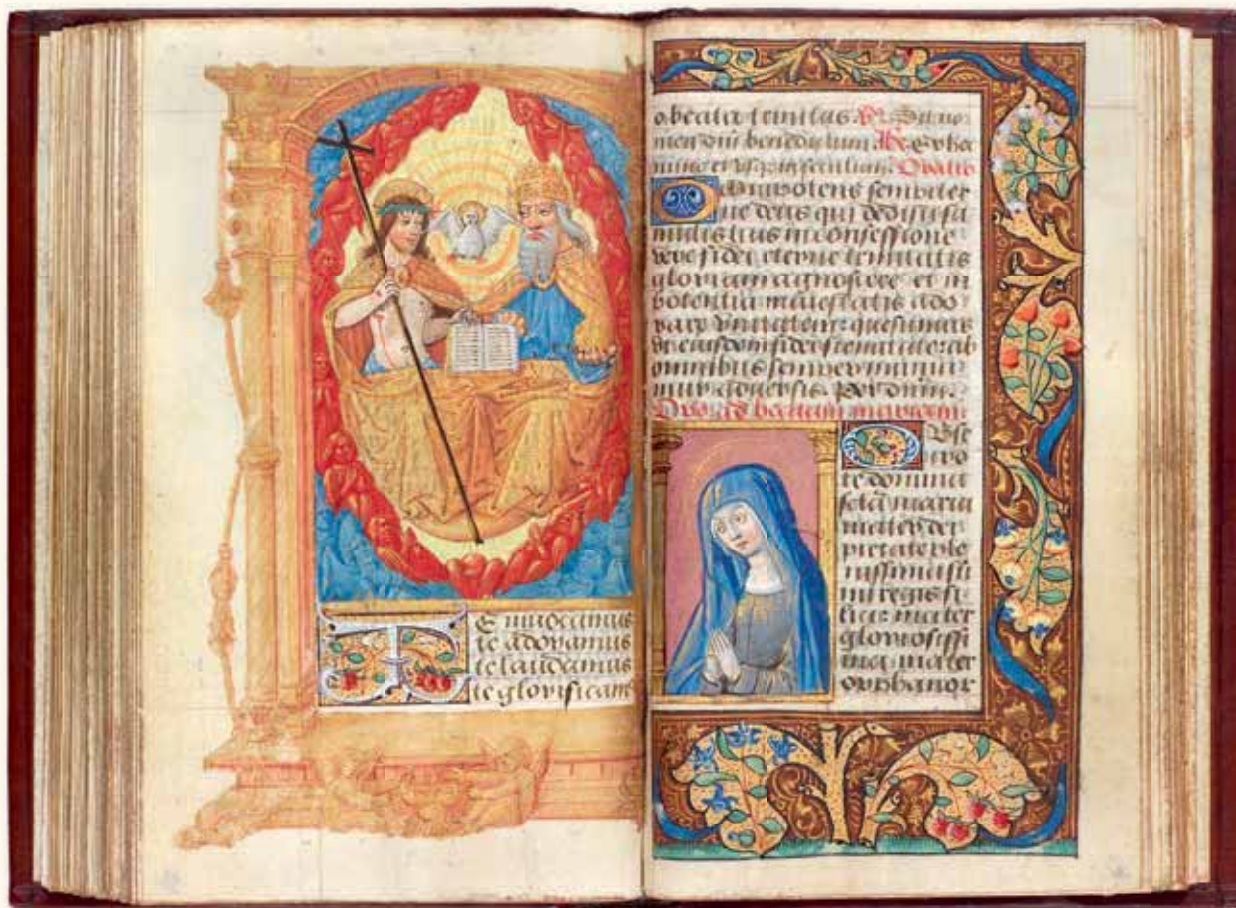 Te invocamus
te adoramus
te laudamus
te glorificam
o beata trinitas ℣. Sit no
men dn̄i benedictum ℟. Ex hoc
nunc et usq; in seculum. Oratio
Omnipotens sempiter
ne deus qui dedisti fa
mulis tuis in confessione
vere fidei eterne trinitatis
gloriam agnoscere et in
potentia maiestatis ado
rare unitatem: quesumus
ut eiusdem fidei firmitate: ab
omnibus semper munia
mur adversis. Per dominū.
Oro ad beatam mariam
Obse
cro
te domina
sctā maria
mater dei
pietate ple
nissima su
mi regis fi
lia: mater
gloriosissi
ma: mater
orphanor